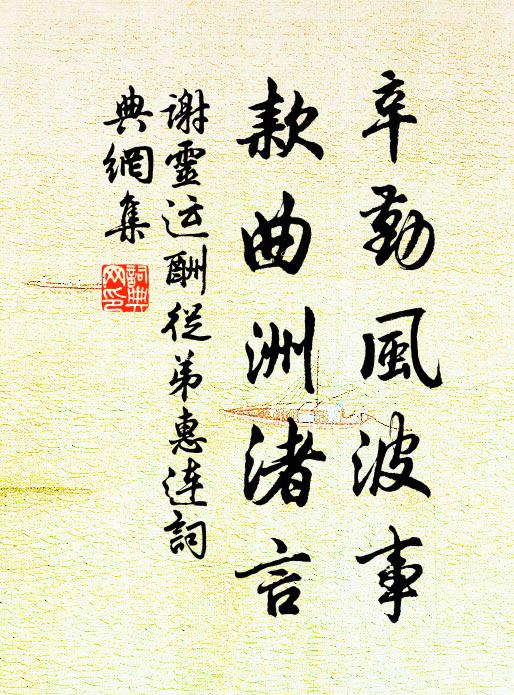 辛勤風波事
款曲洲渚言
谢靈运酬從弟惠连詞
典網集
詞典网印